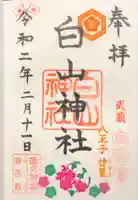 奉拝
武蔵
八王子
白山神社
白山
神社
令和二年二月十一日